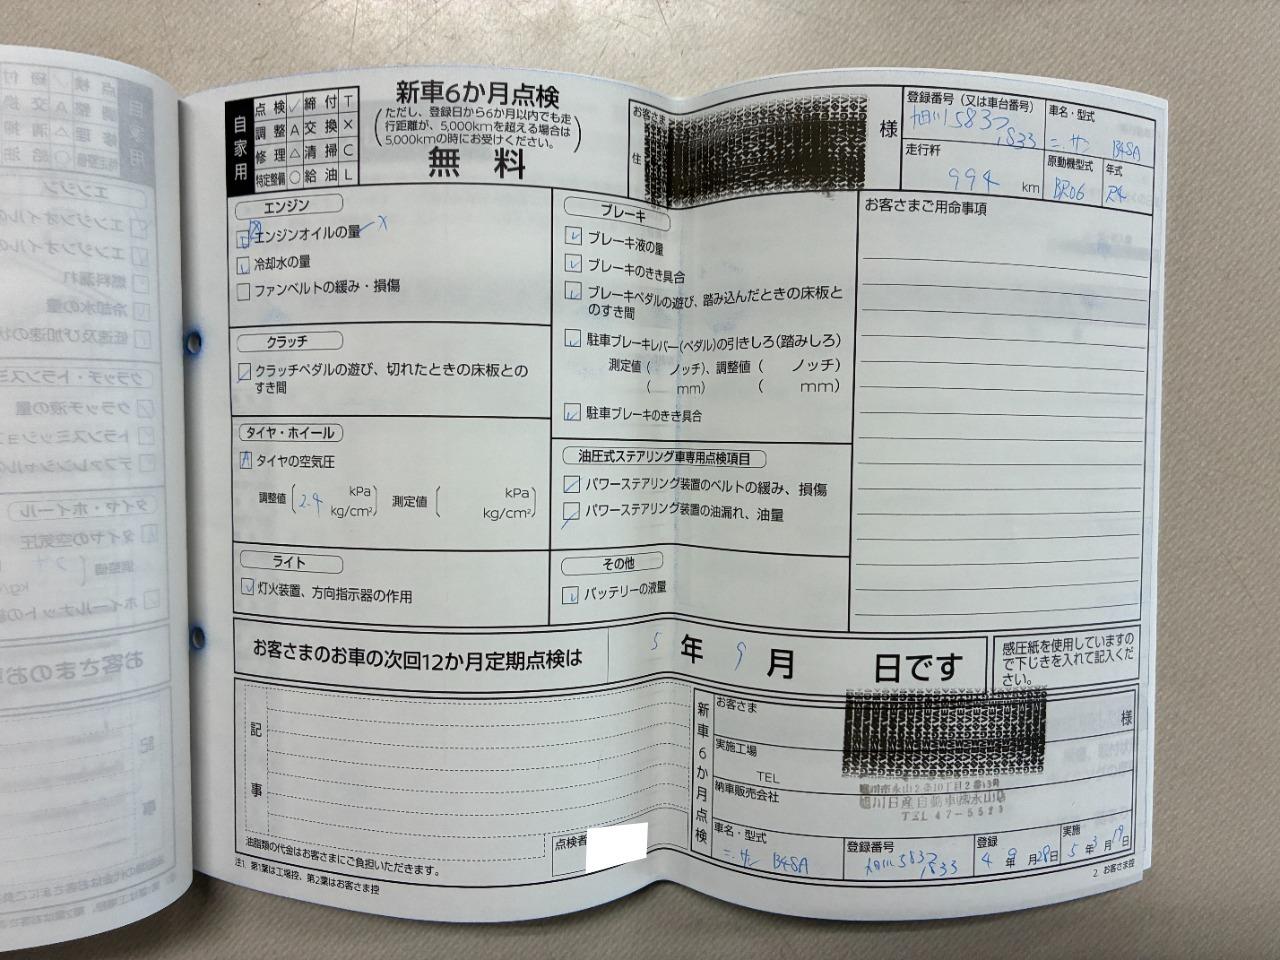 自家用
点検 ✓ 締付 T
調整 A 交換 ×
修理 △ 清掃 C
特定整備 ○ 給油 L
新車6か月点検
(ただし、登録日から6か月以内でも走
行距離が、5,000kmを超える場合は
5,000kmの時にお受けください。)
無料
お客さま
様
住
登録番号(又は車台番号)
旭川583
1833
車名・型式
ニッサン B4SA
走行粁
994 km
原動機型式
BR06
年式
R4
エンジン
エンジンオイルの量
冷却水の量
ファンベルトの緩み・損傷
クラッチ
クラッチペダルの遊び、切れたときの床板との
すき間
タイヤ・ホイール
タイヤの空気圧
調整値 ( 2.4 kPa kg/cm² ) 測定値 ( kPa kg/cm² )
ライト
灯火装置、方向指示器の作用
ブレーキ
ブレーキ液の量
ブレーキのきき具合
ブレーキペダルの遊び、踏み込んだときの床板と
のすき間
駐車ブレーキレバー(ペダル)の引きしろ(踏みしろ)
測定値( ノッチ)、調整値( ノッチ)
( mm) ( mm)
駐車ブレーキのきき具合
油圧式ステアリング車専用点検項目
パワーステアリング装置のベルトの緩み、損傷
パワーステアリング装置の油漏れ、油量
その他
バッテリーの液量
お客さまご用命事項
お客さまのお車の次回12か月定期点検は 5 年 9 月 日です
感圧紙を使用していますの
で下じきを入れて記入くだ
さい。
記事
油脂類の代金はお客さまにご負担いただきます。
点検者
新車6か月点検
お客さま
様
実施工場
TEL
納車販売会社
旭川市永山2条10丁目2番13号
旭川日産自動車㈱永山店
TEL 47-5523
車名・型式
ニッサン B4SA
登録番号
旭川583
1833
登録
4年9月28日
実施
5年3月19日
注1 第1葉は工場控、第2葉はお客さま控
2 お客さま控